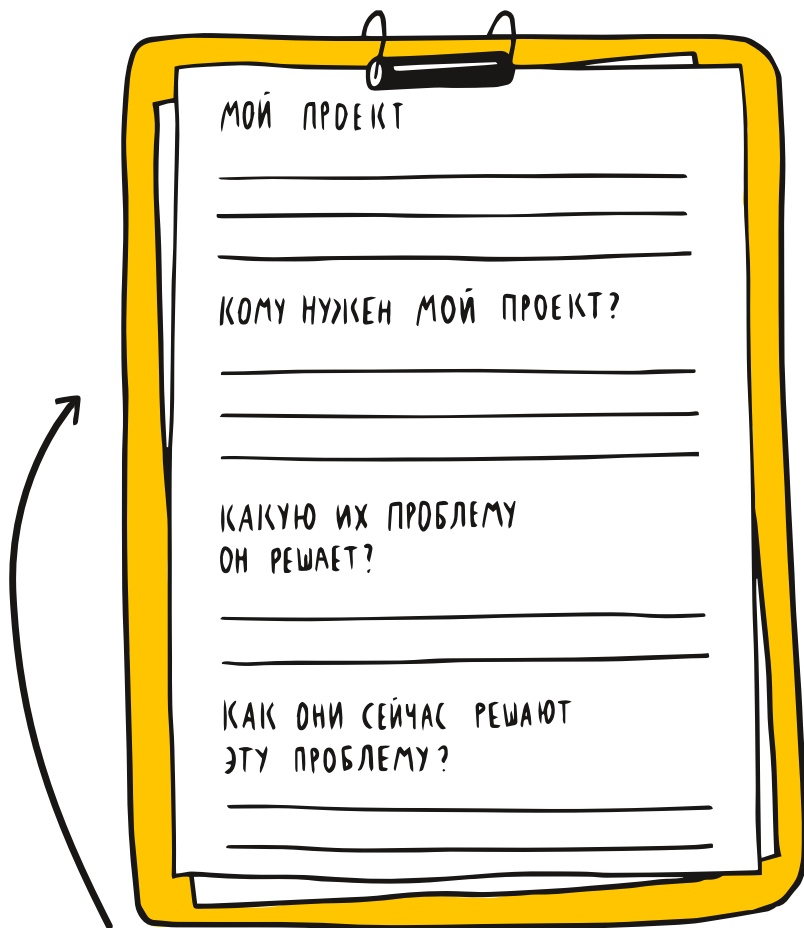 МОЙ ПРОЕКТ
КОМУ НУЖЕН МОЙ ПРОЕКТ?
КАКУЮ ИХ ПРОБЛЕМУ
ОН РЕШАЕТ?
КАК ОНИ СЕЙЧАС РЕШАЮТ
ЭТУ ПРОБЛЕМУ?